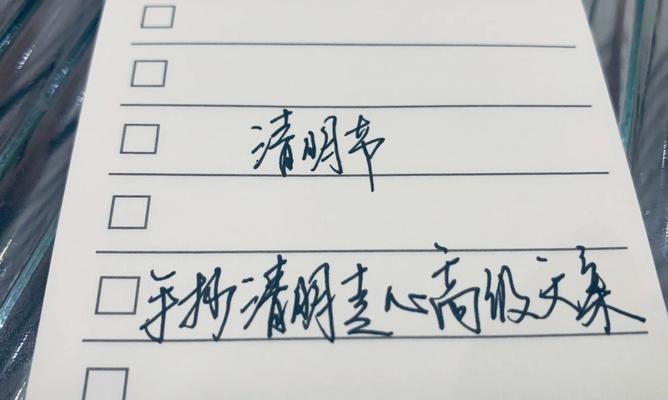 清明节
手抄清明走心高级文案